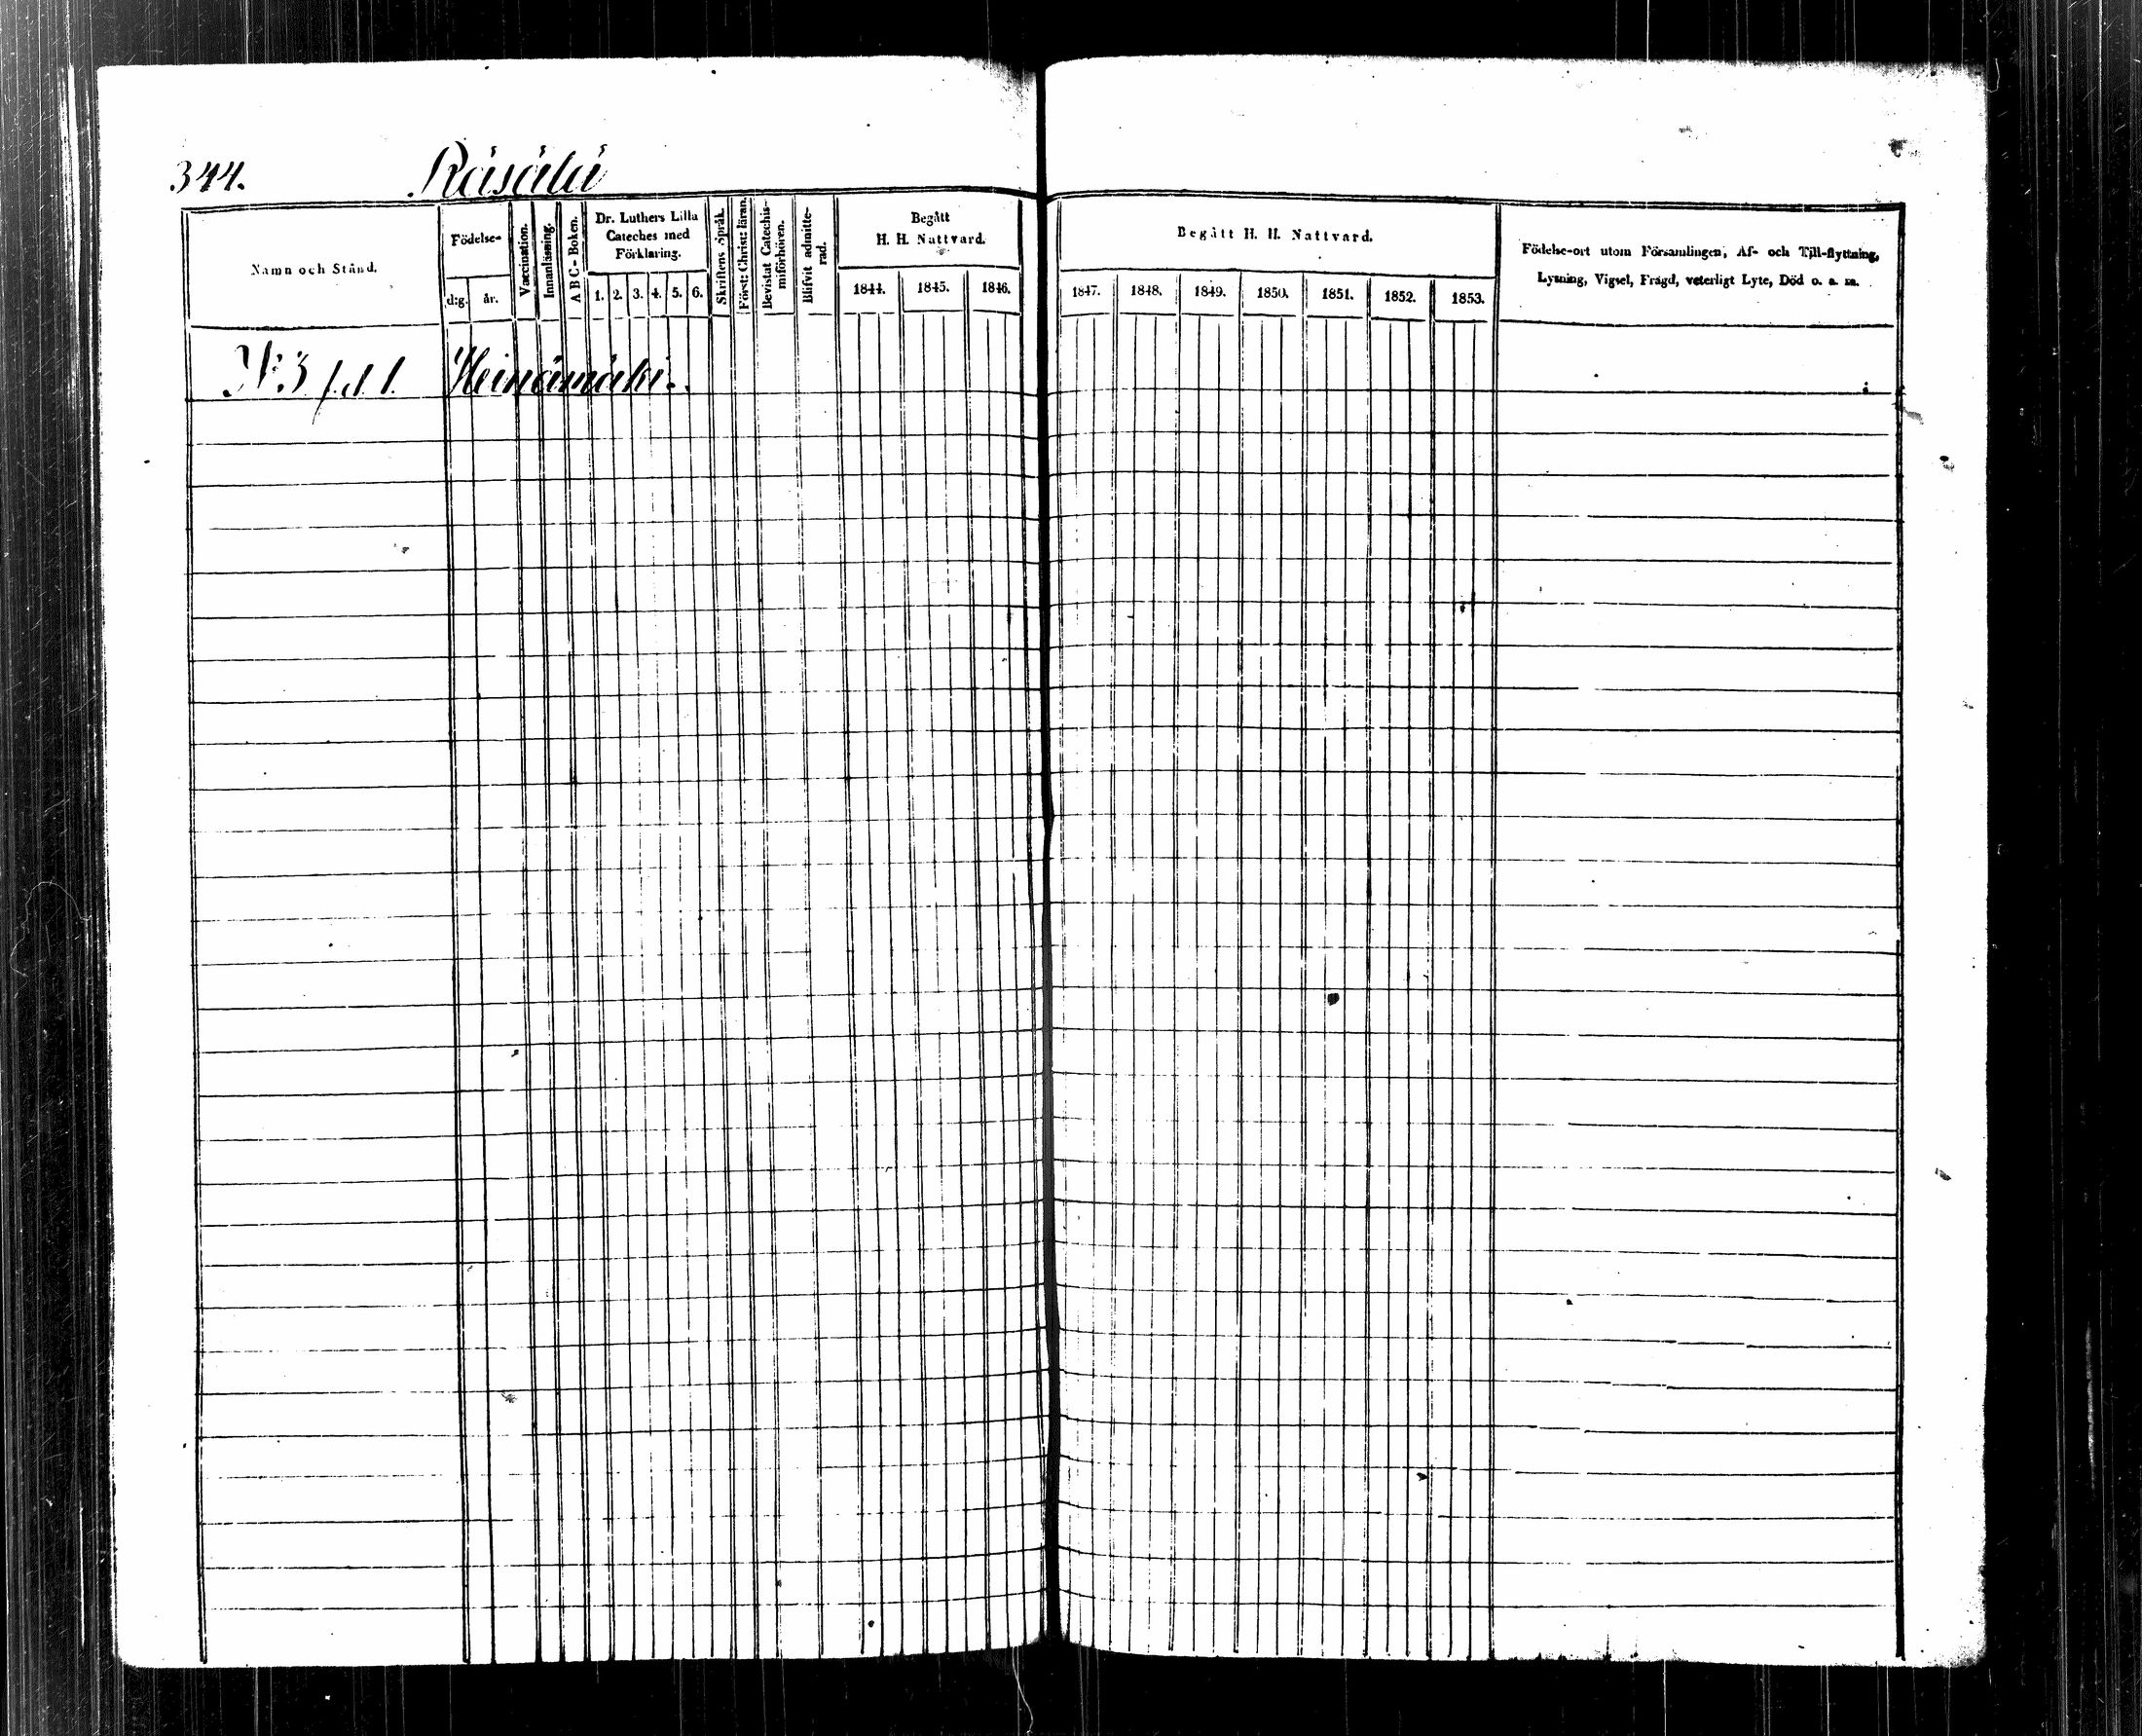 344. Räsälä
Namn och Stånd.
Födelse-
d:g. år.
Vaccination.
Innanläsning.
A B C - Boken.
Dr. Luthers Lilla
Cateches med
Förklaring.
1. 2. 3. 4. 5. 6.
Skriftens Språk.
Först: Christ: läran.
Bevistat Catechis-
miförhören.
Blifvit admitte-
rad.
Begått
H. H. Nattvard.
1844. 1845. 1846.
Begått H. H. Nattvard.
1847. 1848. 1849. 1850. 1851. 1852. 1853.
Födelse-ort utom Församlingen, Af- och Till-flyttning,
Lysning, Vigsel, Frägd, veterligt Lyte, Död o. s. m.
N:3 f.d 1. Heinämäki.